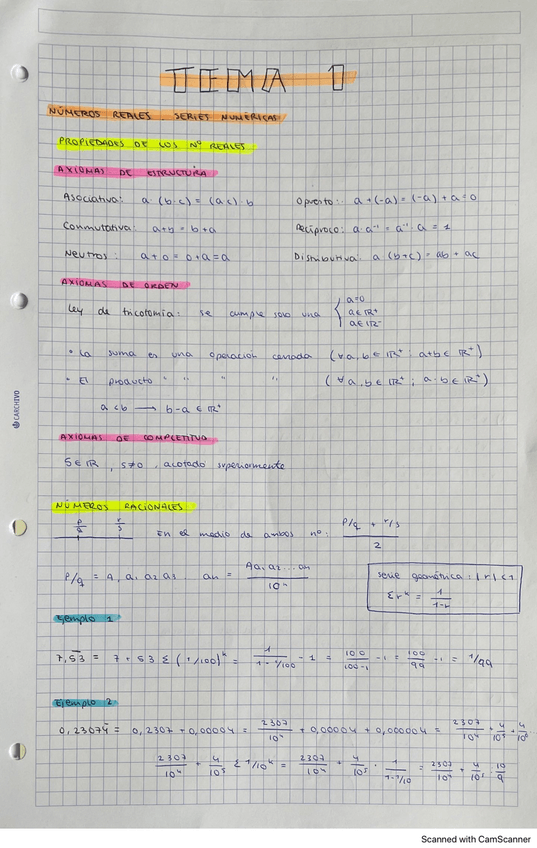 TEMA 1
NÚMEROS REALES SERIES NUMÉRICAS
PROPIEDADES DE LOS Nº REALES
AXIOMAS DE ESTRUCTURA
Asociativa: a·(b·c) = (a c)·b
Opuesto: a+(-a) = (-a)+a=0
Conmutativa: a+b = b+a
Recíproco: a·a⁻¹ = a⁻¹·a = 1
Neutros: a+0 = 0+a=a
Distributiva: a (b+c) = ab + ac
AXIOMAS DE ORDEN
a=0
Ley de tricotomía: se cumple solo una { a∈ℝ⁺
a∈ℝ⁻
• La suma es una operación cerrada (∀a,b ∈ ℝ⁺: a+b ∈ ℝ⁺)
• El producto " " " " (∀a,b ∈ ℝ⁺; a·b ∈ ℝ⁺)
a<b → b-a ∈ ℝ⁺
AXIOMAS DE COMPLETITUD
S∈ℝ, S≠0, acotado superiormente
NÚMEROS RACIONALES
p/q r/s En el medio de ambos nº: (p/q + r/s)/2
P/q = A, a₁ a₂ a₃ an = Aa₁a₂...an/10ⁿ
serie geométrica: |r|<1
Σrᵏ = 1/(1-r)
Ejemplo 1
7,53 = 7 + 53 Σ(1/100)ᵏ = 1/(1-1/100) - 1 = 100/(100-1) - 1 = 100/99 - 1 = 1/99
Ejemplo 2
0,23074 = 0,2307 + 0,00004 = 2307/10⁴ + 0,00004 + 0,000004 = 2307/10⁴ + 4/10⁵ + 4/10⁶
2307/10⁴ + 4/10⁵ Σ1/10ᵏ = 2307/10⁴ + 4/10⁵ · 1/(1-1/10) = 2307/10⁴ + 4/10⁵ · 10/9
CARCHIVO
Scanned with CamScanner